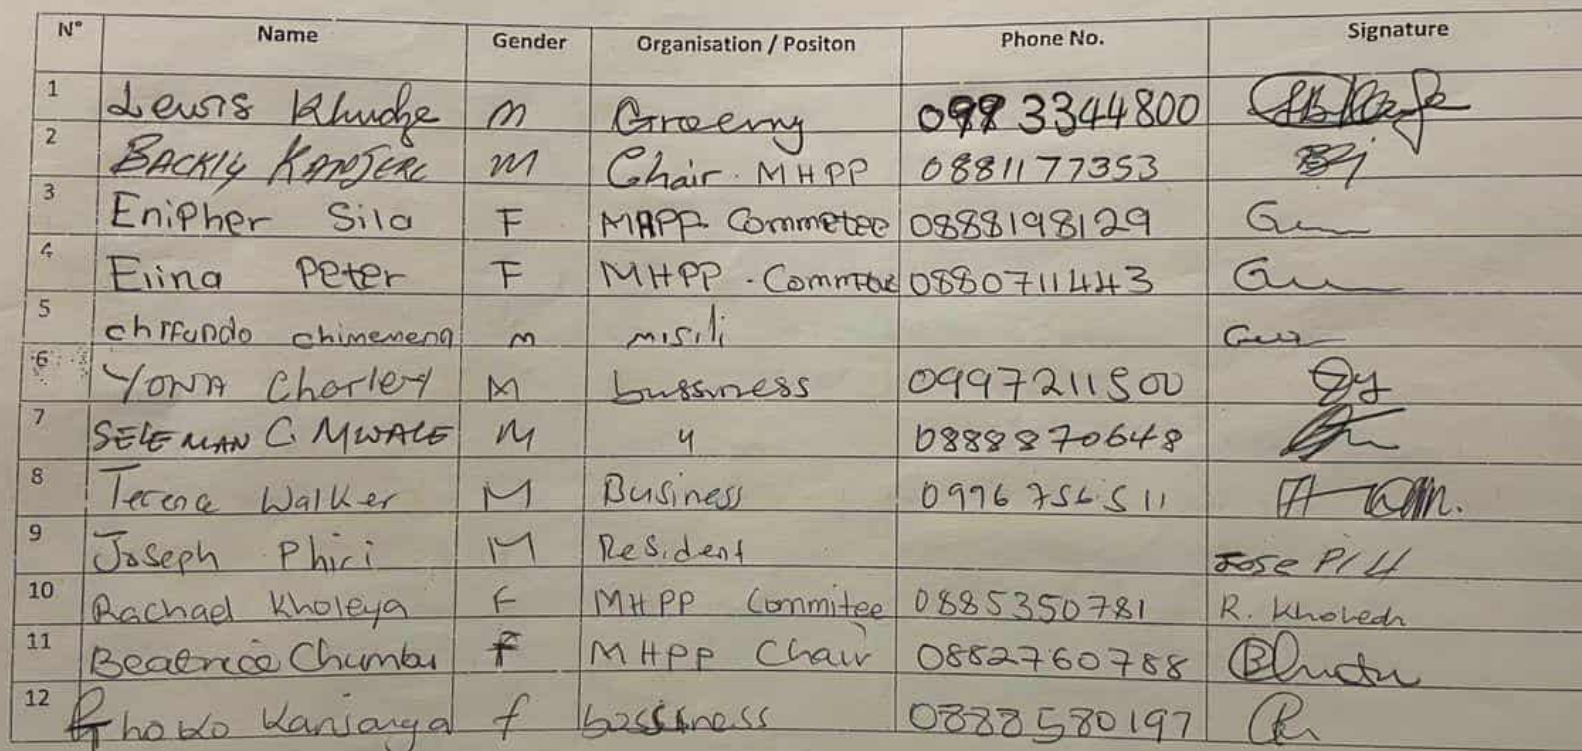 N° Name Gender Organisation / Positon Phone No. Signature
1 Lewis Khudze m 0993344800
2 BACKILY KANJERE M Chair. MHPP 0881177353
3 Enipher Sila F MHPP Commetee 0888198129
4 Elina Peter F MHPP - Commtee 0880711443
5 chifundo chimemena m misili
6 YONA Charley M bussiness 0997211500
7 SELEMAN C. MWALE M 4 0888870648
8 Walker M Business
9 Joseph Phiri M Resident
10 Rachael Kholeya F MHPP Commitee 0885350781 R.
11 Beatrice Chumbu F MHPP Chair 0882760788
12 f bussiness 0888580197